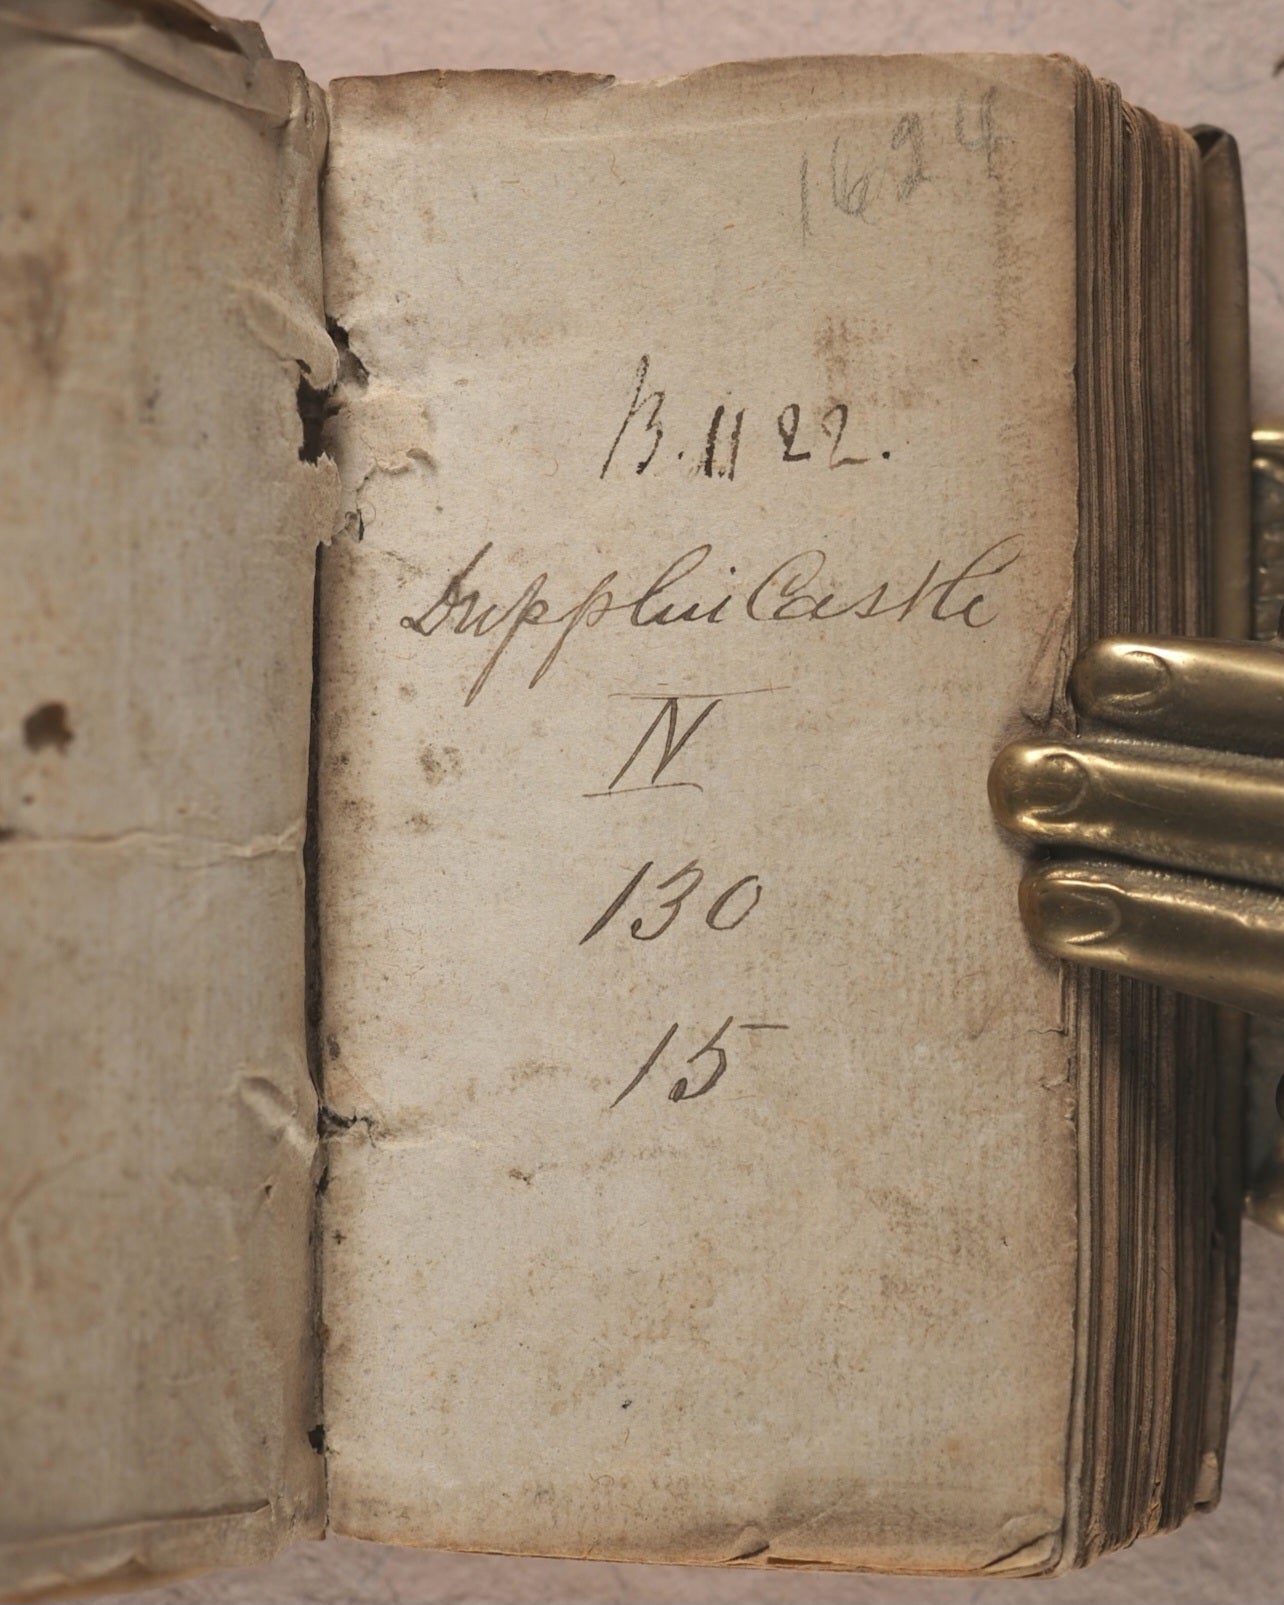 1624
B. 11 22.
Dupplin Castle
N
130
15